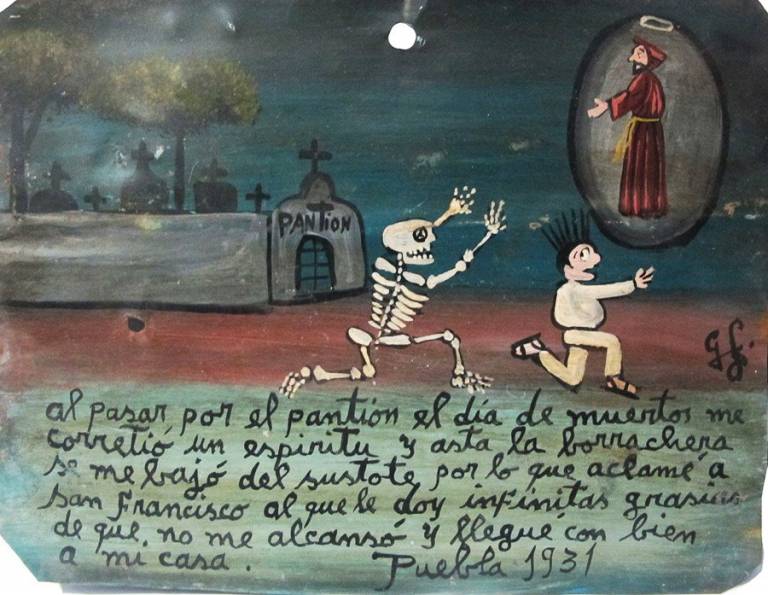 PANTION
al pasar, por el pantión el día de muertos me
corretió un espiritu y asta la borrachera
se me bajó del sustote por lo que aclamé a
san Francisco al que le doy infinitas grasias
de que, no me alcansó y llegué con bien
a mi casa. Puebla 1931